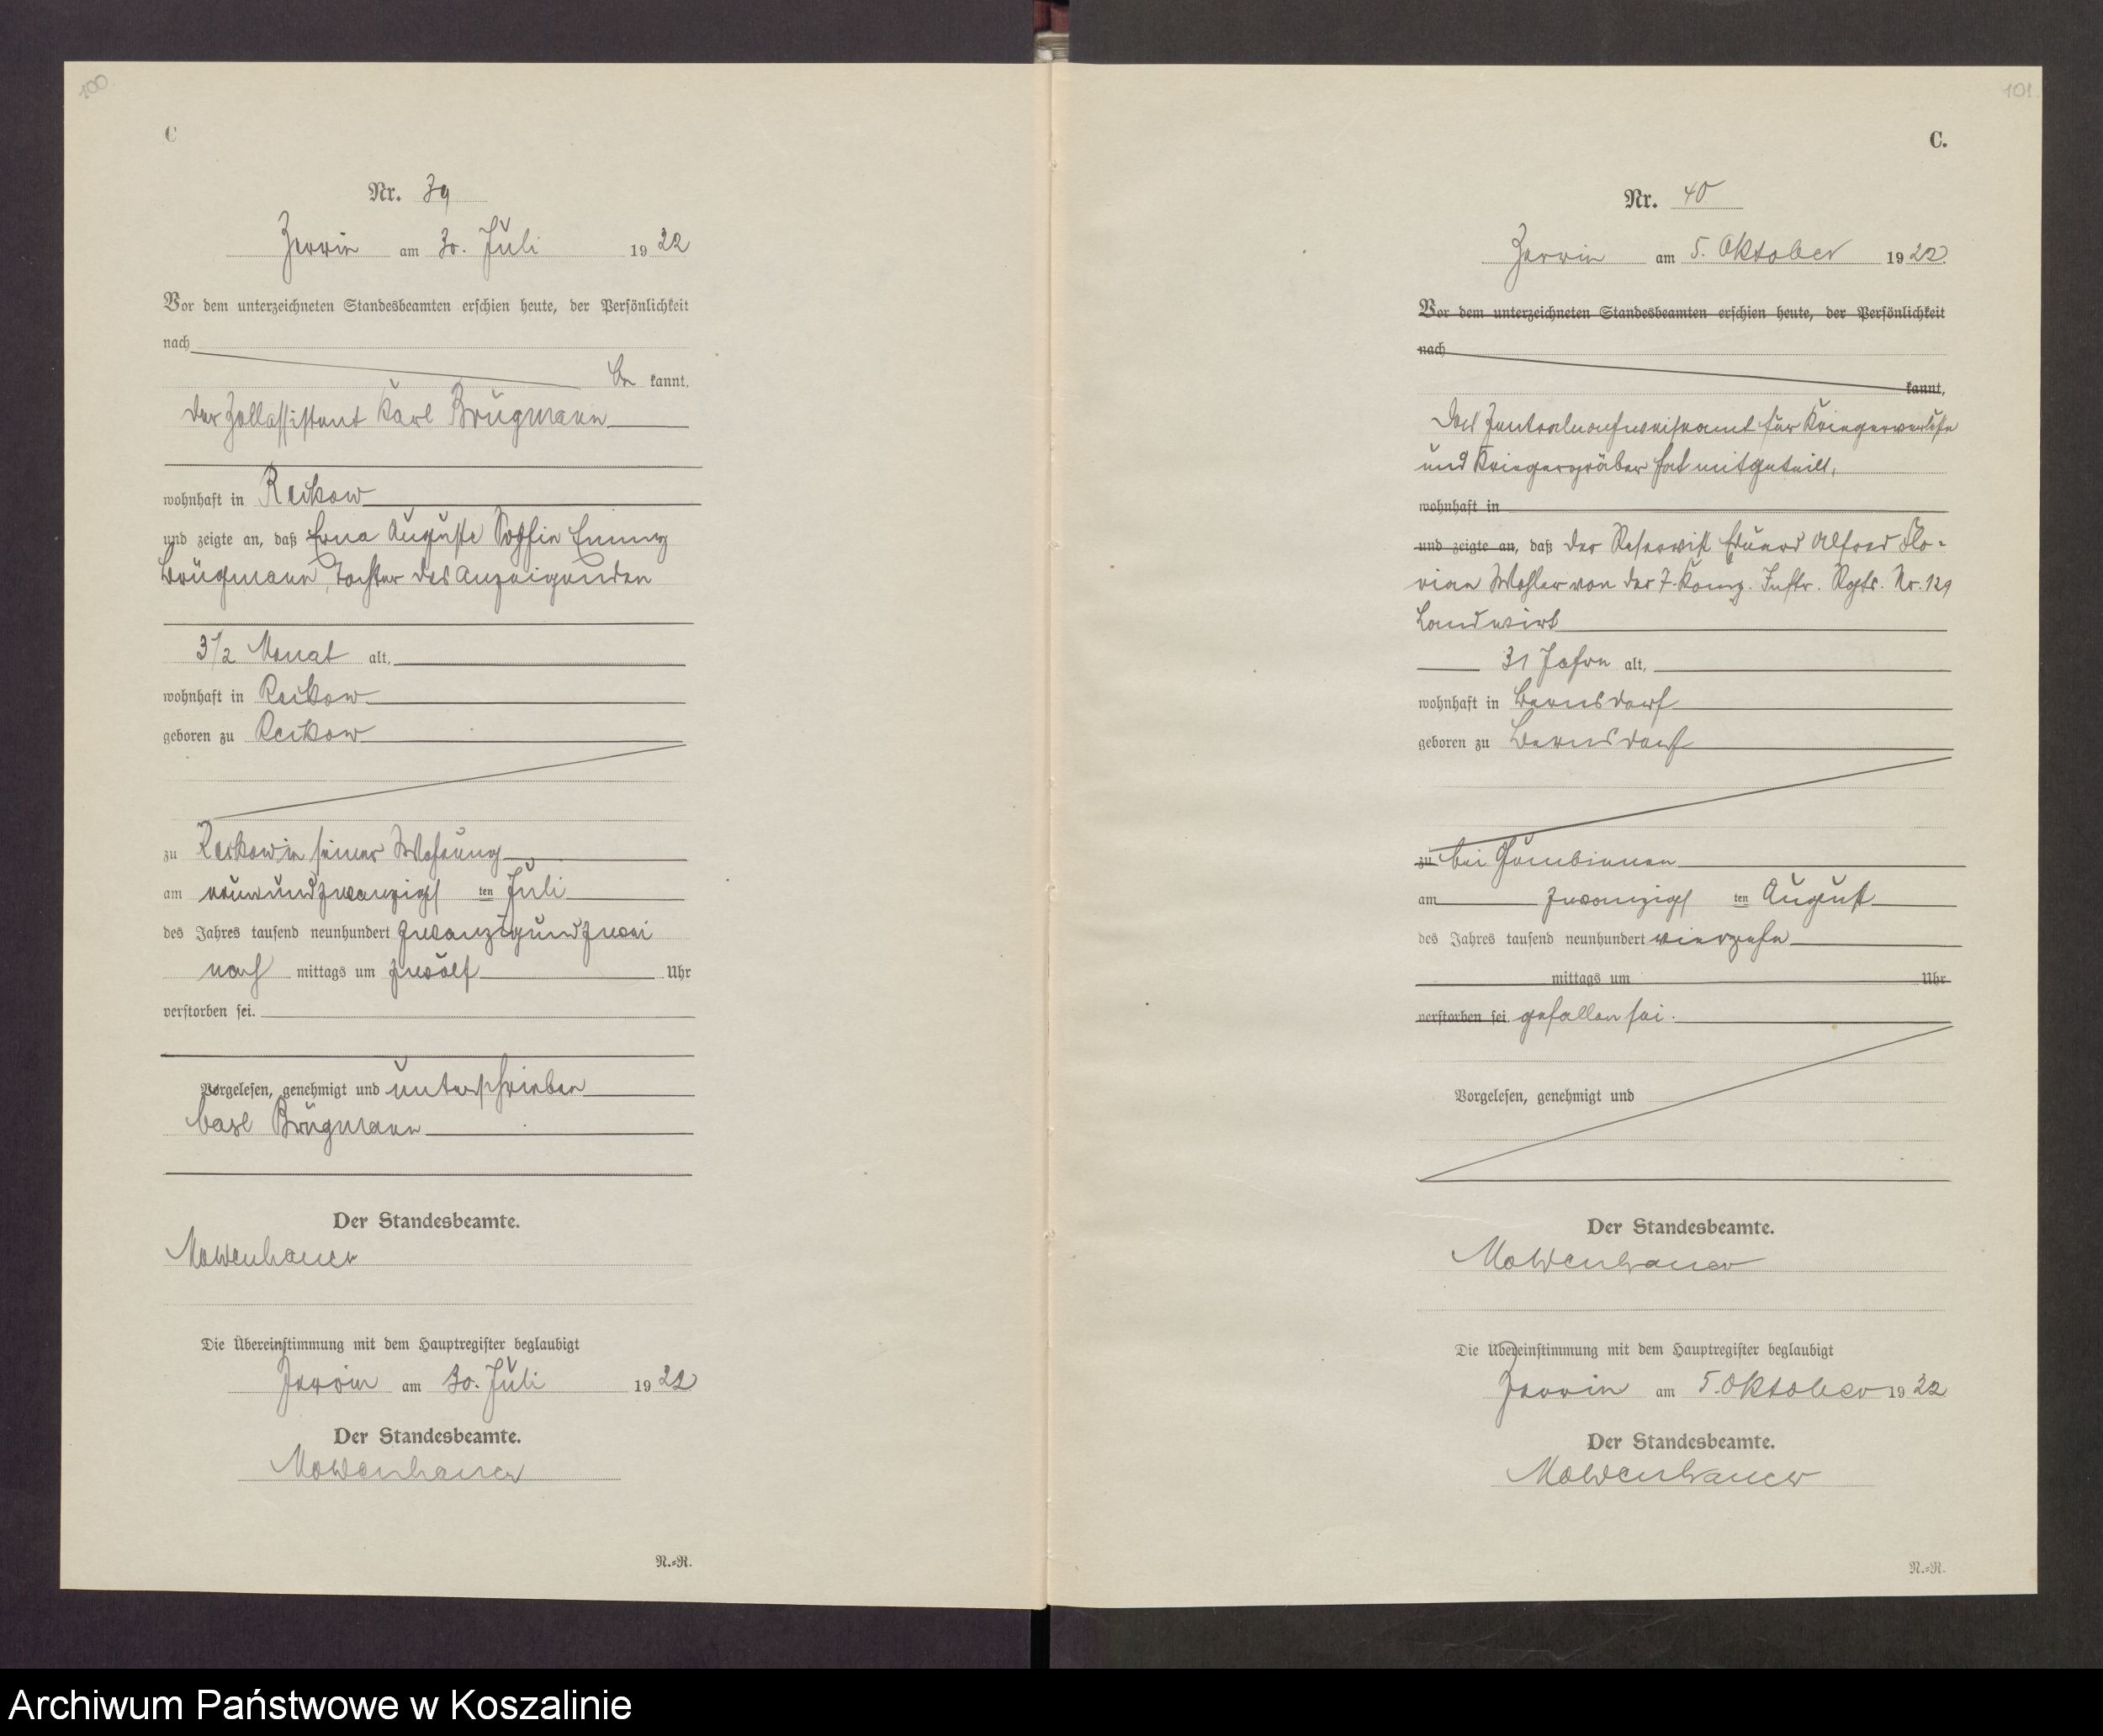 100.
C
Nr. 39
Zerrin am 30. Juli 1922
Vor dem unterzeichneten Standesbeamten erschien heute, der Persönlichkeit
nach
be kannt,
der Zollassistent Karl Brügmann
wohnhaft in Reckow
und zeigte an, daß Erna Auguste Sophie Emmy
Brügmann, Tochter des Anzeigenden
3 1/2 Monat alt,
wohnhaft in Reckow
geboren zu Reckow
zu Reckow in seiner Wohnung
am neunundzwanzigsten Juli
des Jahres tausend neunhundert zwanzigundzwei
nach mittags um zwölf Uhr
verstorben sei.
Vorgelesen, genehmigt und unterschrieben
Karl Brügmann
Der Standesbeamte.
Moldenhauer
Die Übereinstimmung mit dem Hauptregister beglaubigt
Zerrin am 30. Juli 1922
Der Standesbeamte.
Moldenhauer
R.=R.
101.
C.
Nr. 40
Zerrin am 5. Oktober 1922.
Vor dem unterzeichneten Standesbeamten erschien heute, der Persönlichkeit
nach
kannt,
Das Zentralnachweiseamt für Kriegerverluste
und Kriegergräber hat mitgeteilt,
wohnhaft in
und zeigte an, daß der Reservist Eduard Alfred Flo-
rian Wohler von der 7. Komp. Inftr. Rgts. Nr. 129
Landwirt
31 Jahre alt,
wohnhaft in Bernsdorf
geboren zu Bernsdorf
zu bei Gumbinnen
am zwanzigsten August
des Jahres tausend neunhundert vierzehn
mittags um Uhr
verstorben sei gefallen sei.
Vorgelesen, genehmigt und
Der Standesbeamte.
Moldenhauer
Die Übereinstimmung mit dem Hauptregister beglaubigt
Zerrin am 5. Oktober 1922
Der Standesbeamte.
Moldenhauer
R.=R.
Archiwum Państwowe w Koszalinie